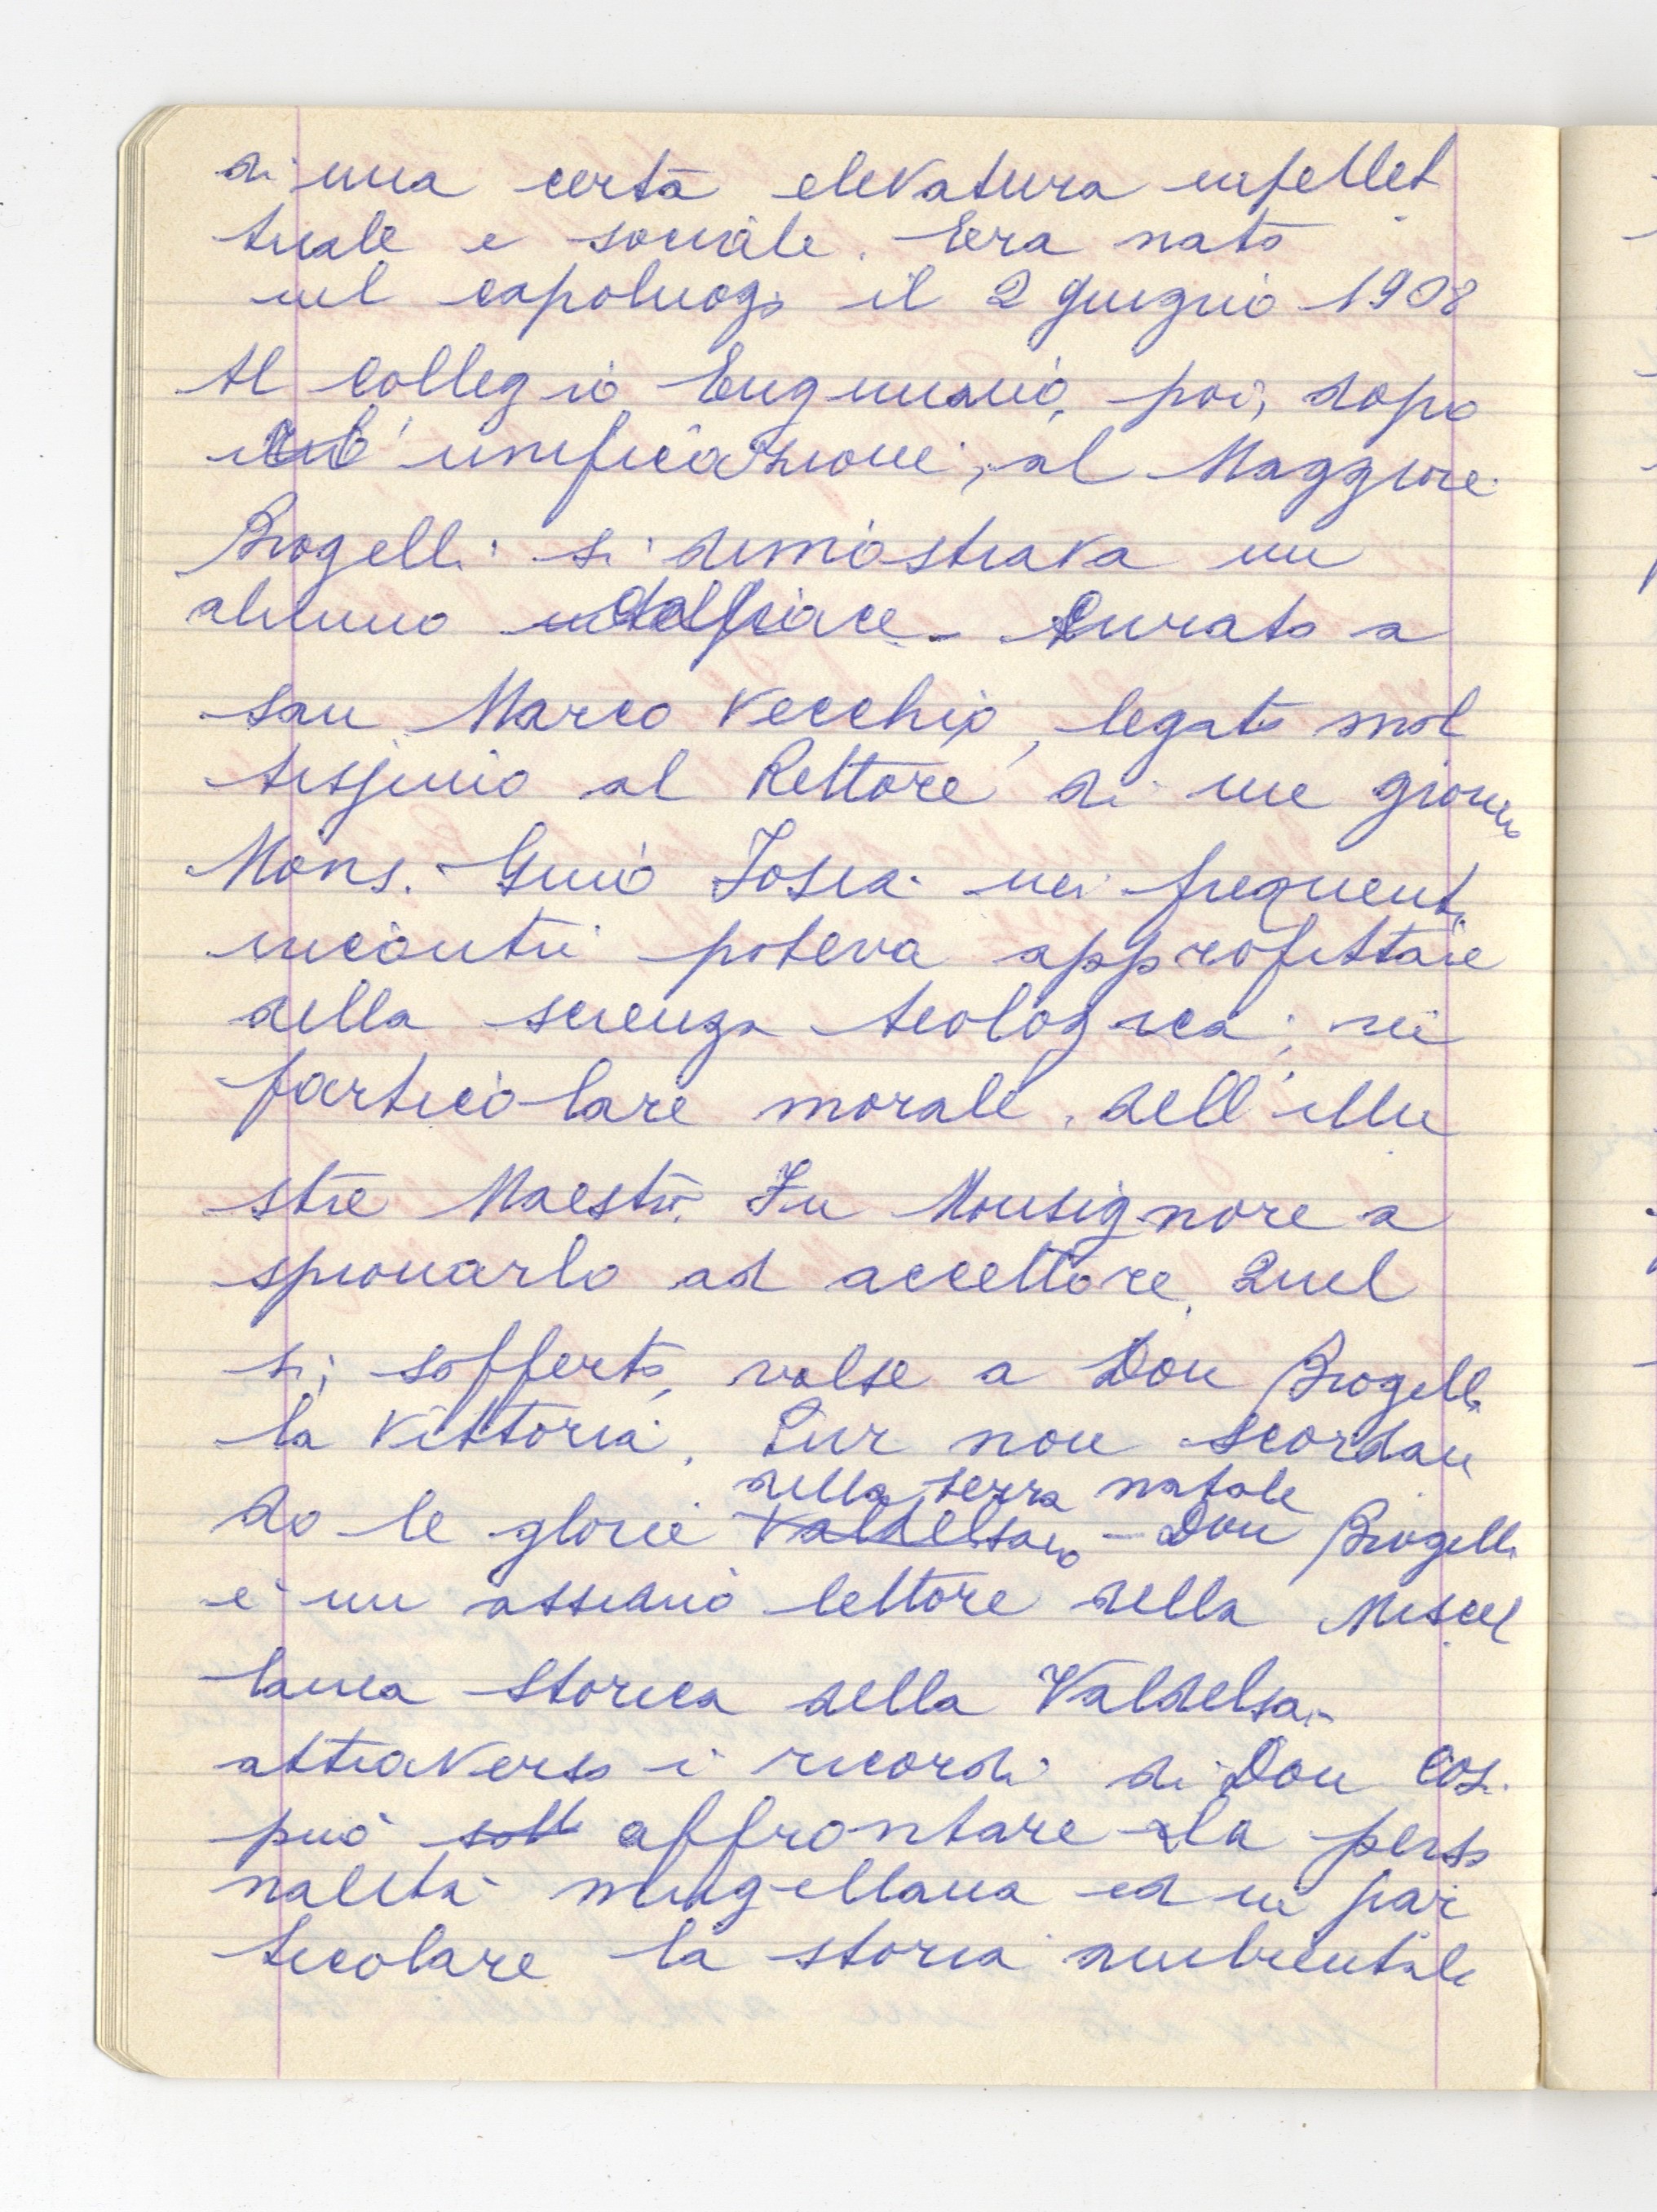 di una certa elevatura intellet
tuale e sociale. Era nato
nel capoluogo il 2 giugno 1908
Al Collegio Eugeniano, poi, dopo
l'unificazione, al Maggiore
Brogelli si dimostrava un
alunno Curato a
San Marco Vecchio, legato mol
tissimo al Rettore di me giovane
Mons. Josia nei frequenti
incontri poteva approfittare
della scienza teologica; in
particolare morale, dell'illu
stre Maestro. Fu Monsignore a
spronarlo ad accettare. Quel
si, sofferto, valse a Don Brogelli
la vittoria. Pur non scordan
do le glorie della terra natale
Valdelsano - Don Brogelli
è un assiduo lettore della Miscel
lanea Storica della Valdelsa -
attraverso i ricordi di Don Cos.
può affrontare la perso
nalità mugellana ed in par
ticolare la storia ambientale